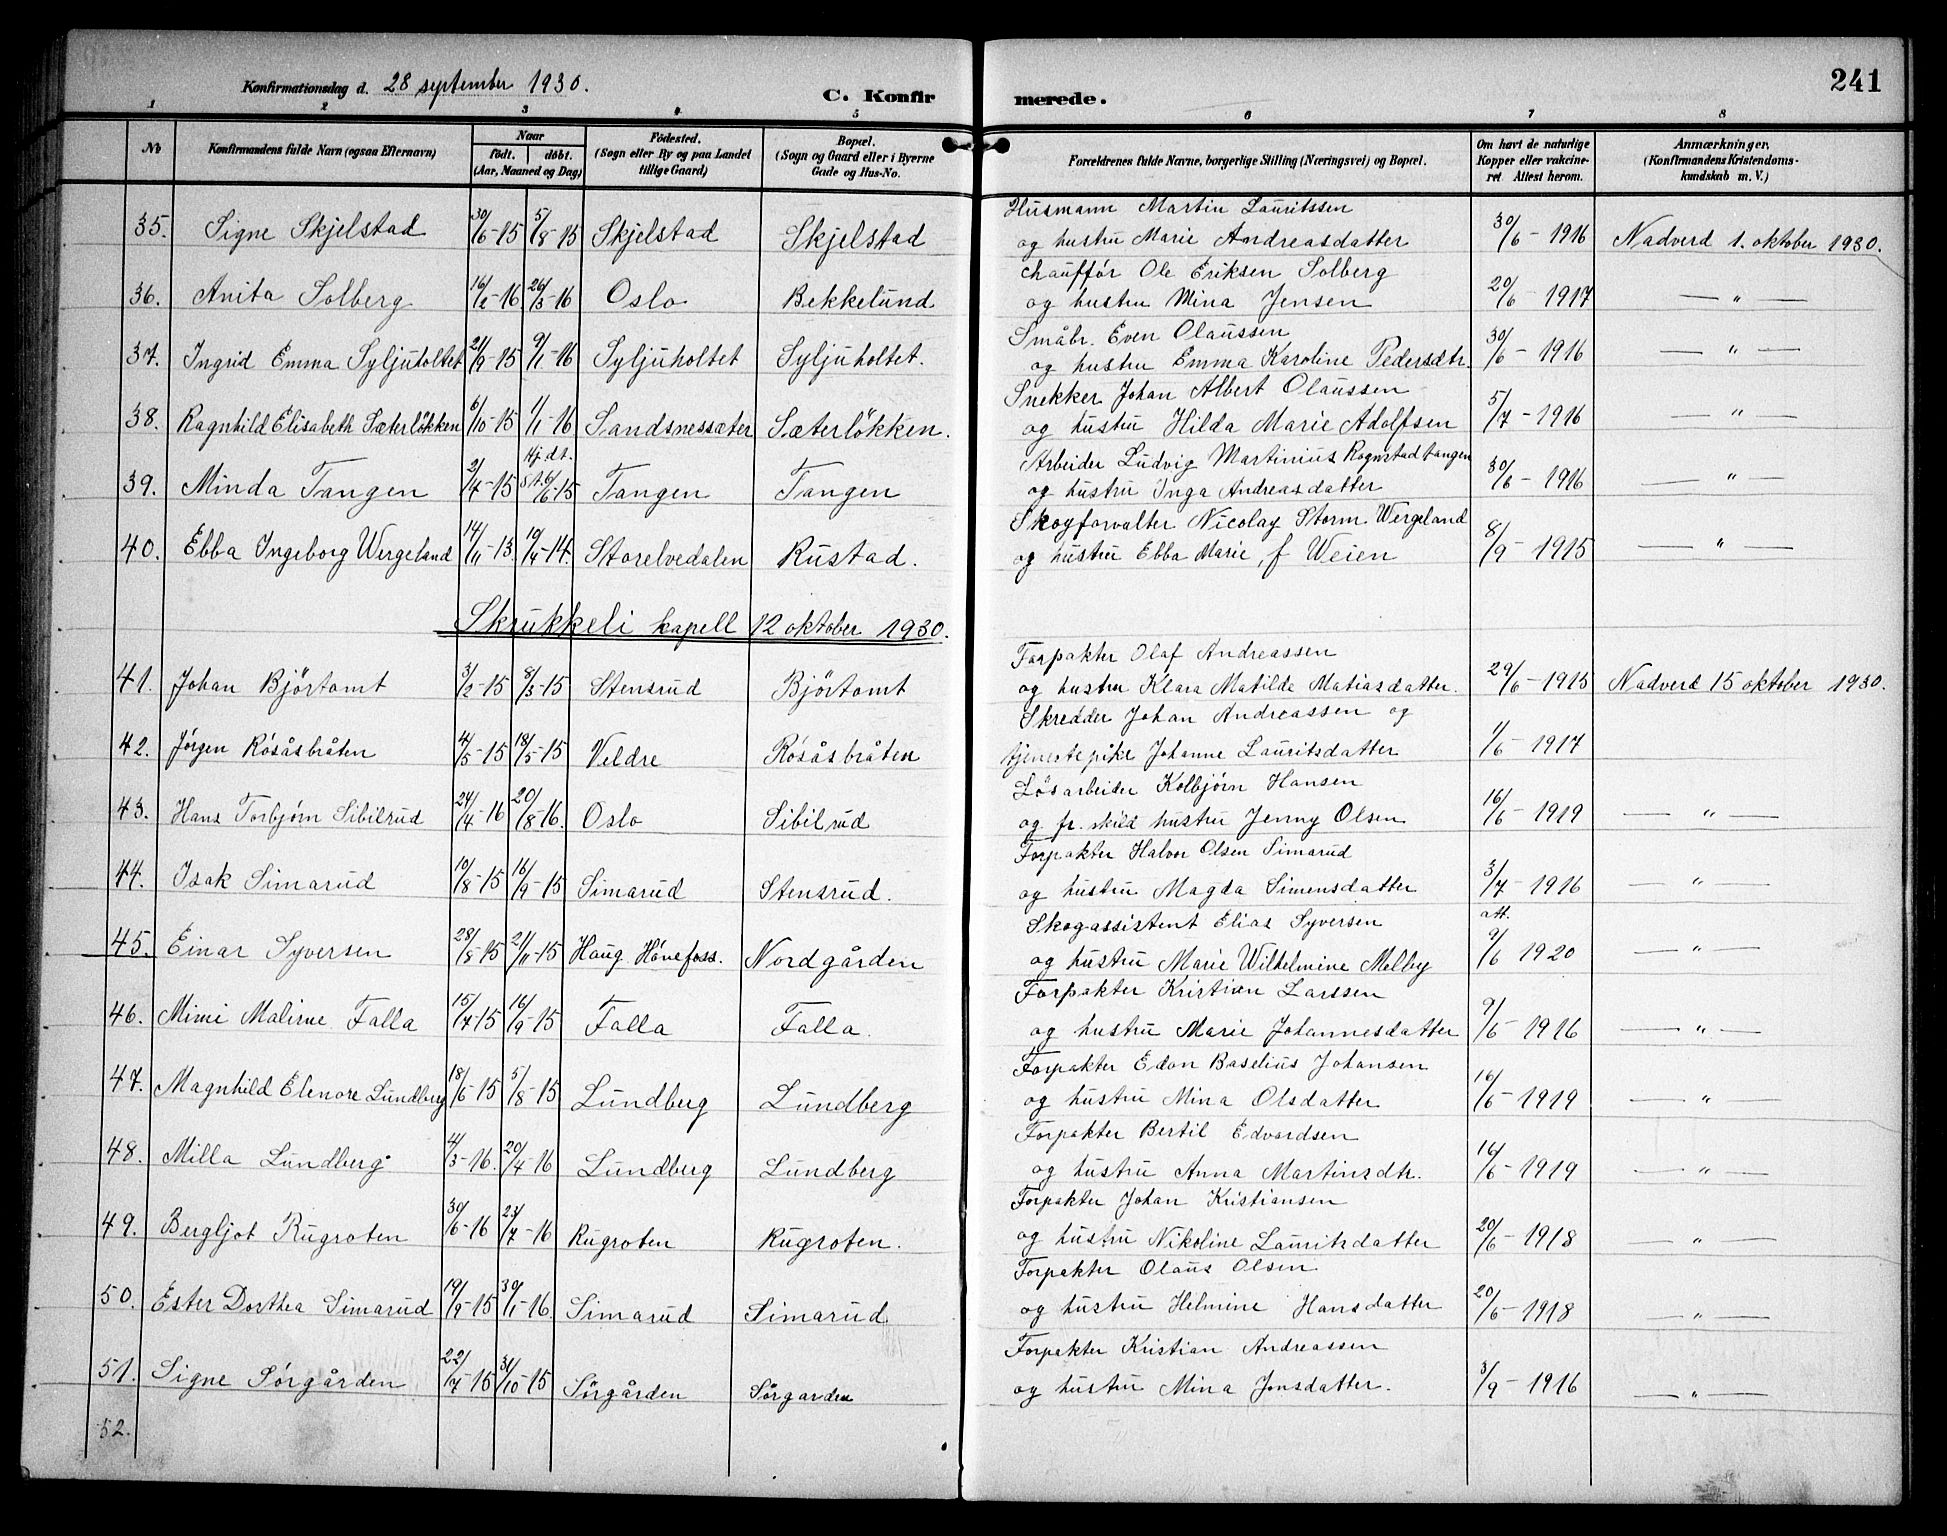 Konfirmationsdag d. 28 september 1930.
C. Konfirmerede.
241
1 2 3 4 5 6 7 8
No
Konfirmandens fulde Navn (ogsaa Efternavn)
Naar
født. døbt.
(Aar, Maaned og Dag)
Födested.
(Sogn eller By og paa Landet
tillige Gaard)
Bopæl.
(Sogn og Gaard eller i Byerne
Gade og Hus-No.
Forældrenes fulde Navne, borgerlige Stilling (Næringsvei) og Bopæl.
Om havt de naturlige
Kopper eller vakcine-
ret Attest herom.
Anmærkninger,
(Konfirmandens Kristendoms-
kundskab m. V.)
Husmann Martin Lauritssen
35. Signe Skjelstad 30/6-15 5/8-15 Skjelstad Skjelstad og hustru Marie Andreasdatter 30/6-1916 Nadverd 1. oktober 1930.
chauffør Ole Eriksen Solberg
36. Anita Solberg 16/2-16 26/3-16 Oslo Bekkelund og hustru Mina Jensen 20/6-1917 — " —
Småbr. Even Olaussen
37. Ingrid Emma Syljuholtet 21/9-15 9/1-16 Syljuholtet Syljuholtet. og hustru Emma Karoline Pedersdtr. 30/6-1916 — " —
Snekker Johan Albert Olaussen
38. Ragnhild Elisabeth Sæterløkken 6/10-15 1/1-16 Sandsnessæter Sæterløkken. og hustru Hilda Marie Adolfsen 5/7-1916 — " —
Arbeider Ludvig Martinius Rognstadtangen
39. Minda Tangen 2/4-15 Hj.dt. 6/6-15 Tangen Tangen og hustru Inga Andreasdatter 30/6-1916 — " —
Skogforvalter Nicolay Storm Wergeland
40. Ebba Ingeborg Wergeland 14/11-13. 19/4-14. Storelvedalen Rustad. og hustru Ebba Marie, f Weien 8/9-1915 — " —
Skrukkeli kapell 12 oktober 1930.
Forpakter Olaf Andreassen
41. Johan Bjørtomt 3/2-15 8/3-15 Stensrud Bjørtomt og hustru Klara Matilde Matiasdatter. 29/6-1915 Nadverd 15 oktober 1930.
Skredder Johan Andreassen og
42. Jørgen Røsåsbråten 4/5-15 18/5-15 Veldre Røsåsbråten tjenestepike Johanne Lauritsdatter 1/6-1917
Løsarbeider Kolbjørn Hansen
43. Hans Torbjørn Sibilrud 24/4-16 20/8-16. Oslo Sibilrud og fr. skild hustru Jenny Olsen 16/6-1919 — " —
Forpakter Halvor Olsen Simarud
44. Isak Simarud 10/8-15 16/9-15 Simarud Stensrud. og hustru Magda Simensdatter 3/7-1916 — " —
Skogassistent Elias Syversen att.
45. Einar Syversen 28/8-15 21/11-15 Haug Hønefoss. Nordgården og hustru Marie Wilhelmine Melby 9/6 1920 — " —
Forpakter Kristian Larssen
46. Mimi Malirne Falla 15/7-15 16/9-15 Falla Falla. og hustru Marie Johannesdatter 9/6-1916 — " —
Forpakter Edon Baselius Johansen
47. Magnhild Elenore Lundberg 18/6-15 5/8-15 Lundberg Lundberg og hustru Mina Olsdatter 16/6-1919 — " —
Forpakter Bertil Edvardsen
48. Milla Lundberg 4/3-16. 20/4-16 Lundberg Lundberg og hustru Anna Martinsdtr. 16/6-1919 — " —
Forpakter Johan Kristiansen
49. Bergljot Rugroten 30/6-16 23/7-16 Rugroten Rugroten. og hustru Nikoline Lauritsdatter 20/6-1918 — " —
Forpakter Olaus Olsen
50. Ester Dorthea Simarud 19/9-15 30/1-16. Simarud Simarud og hustru Helmine Hansdatter 20/6-1918 — " —
Forpakter Kristian Andreassen
51. Signe Sørgården 22/7-15 31/10-15 Sørgården Sørgarden og hustru Mina Jonsdatter. 3/9-1916 — " —
52.